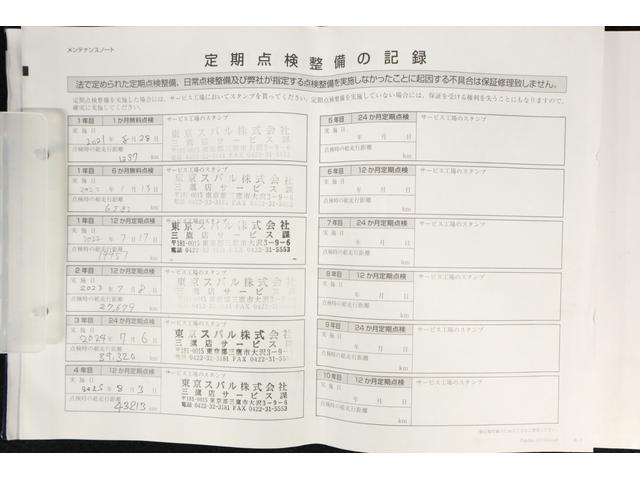 メンテナンスノート
定期点検整備の記録
法で定められた定期点検整備、日常点検整備及び弊社が指定する点検整備を実施しなかったことに起因する不具合は保証修理致しません。
定期点検整備を実施した場合には、サービス工場においてスタンプを貰ってください。定期点検整備を実施していない場合には、保証を受ける権利を失うことにもなりますので、
確実に実施してください。
1年目 1か月無料点検 サービス工場のスタンプ
実施日
2021年8月28日
点検時の総走行距離
1237 km
東京スバル株式会社
三鷹店サービス課
1年目 6か月無料点検 サービス工場のスタンプ
実施日
年1月15日
点検時の総走行距離
km
東京スバル株式会社
三鷹店サービス課
〒181-0015 東京都三鷹市大沢3-9-6
1年目 12か月定期点検 サービス工場のスタンプ
実施日
2022年7月17日
点検時の総走行距離
km
東京スバル株式会社
三鷹店サービス課
〒181-0015 東京都三鷹市大沢3-9-6
2年目 12か月定期点検 サービス工場のスタンプ
実施日
2023年7月8日
点検時の総走行距離
27,679 km
東京スバル株式会社
三鷹店サービス課
3年目 24か月定期点検 サービス工場のスタンプ
実施日
2024年7月6日
点検時の総走行距離
39,320 km
東京スバル株式会社
三鷹店サービス課
〒181-0015 東京都三鷹市大沢3-9-6
☎ 0422-32-3181 FAX 0422-31-5553
4年目 12か月定期点検 サービス工場のスタンプ
実施日
2025年8月3日
点検時の総走行距離
43813 km
東京スバル株式会社
三鷹店サービス課
〒181-0015 東京都三鷹市大沢3-9-6
☎ 0422-32-3181 FAX 0422-31-5553
5年目 24か月定期点検 サービス工場のスタンプ
実施日
年 月 日
点検時の総走行距離
km
6年目 12か月定期点検 サービス工場のスタンプ
実施日
年 月 日
点検時の総走行距離
km
7年目 24か月定期点検 サービス工場のスタンプ
実施日
年 月 日
点検時の総走行距離
km
8年目 12か月定期点検 サービス工場のスタンプ
実施日
年 月 日
点検時の総走行距離
km
9年目 24か月定期点検 サービス工場のスタンプ
実施日
年 月 日
点検時の総走行距離
km
10年目 12か月定期点検 サービス工場のスタンプ
実施日
年 月 日
点検時の総走行距離
km